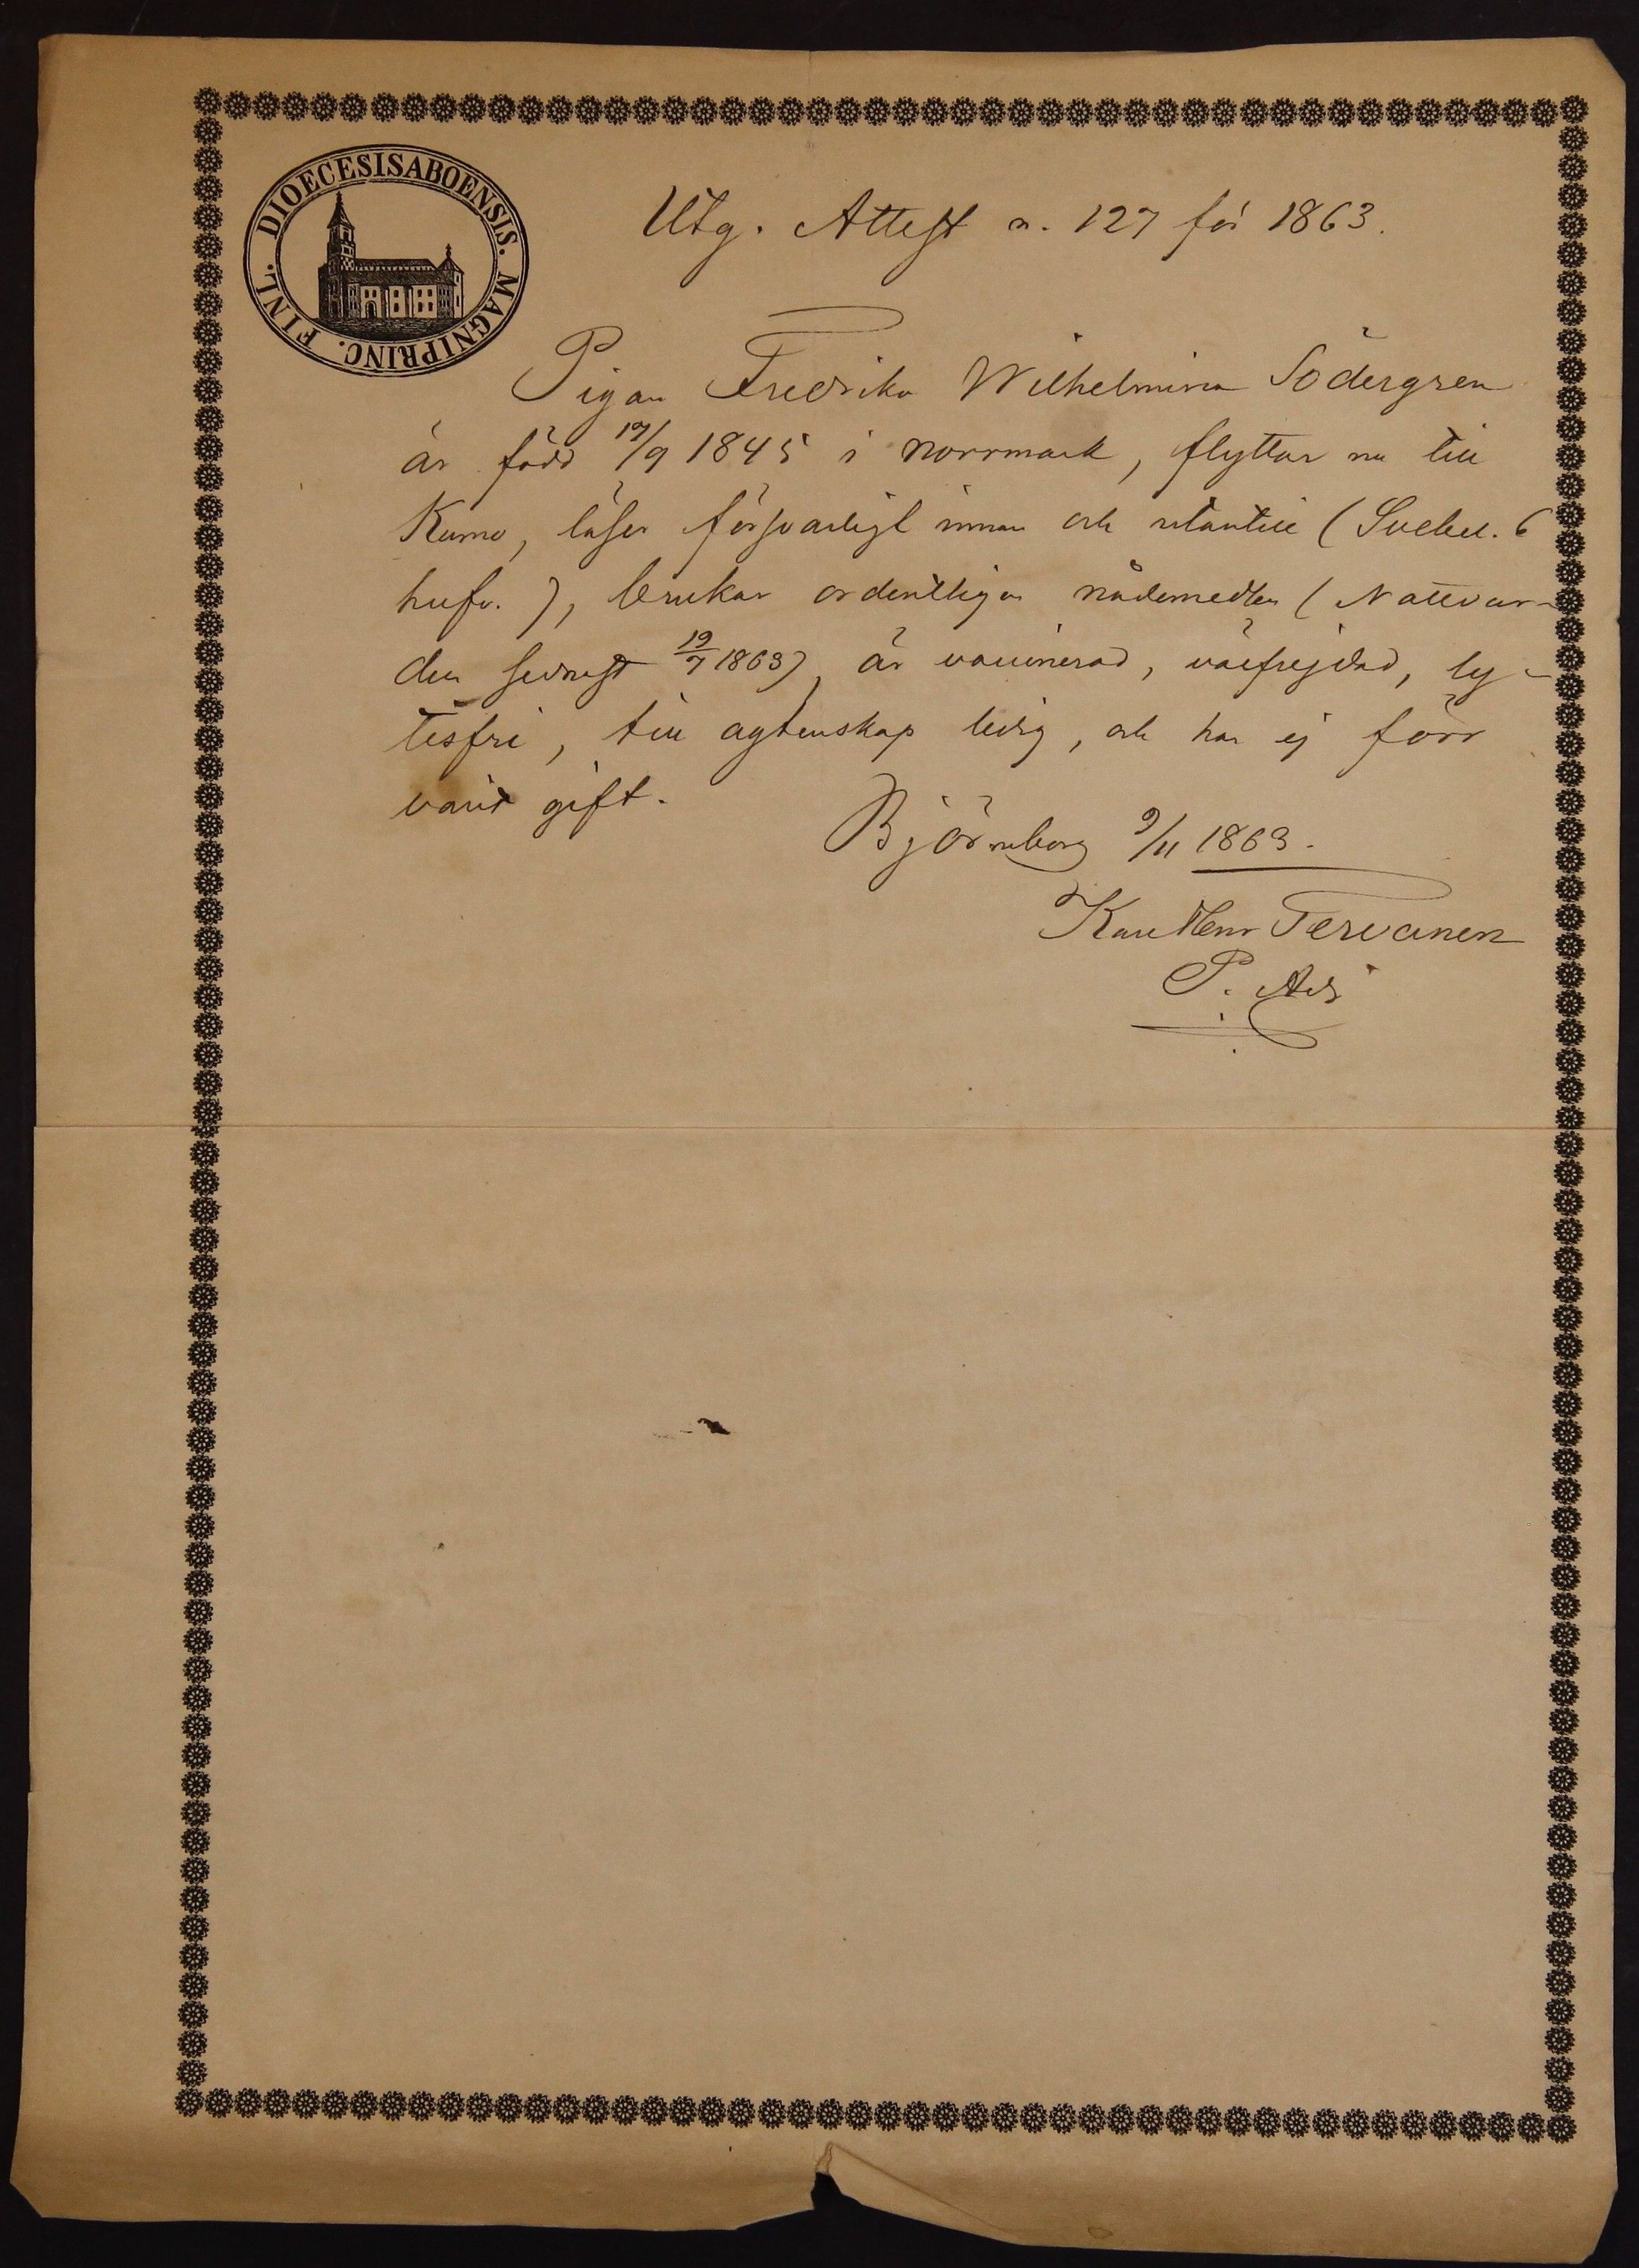 DIOECESIS ABOENSIS. MAGNI PRINC. FINL.
Utg. Attest n. 127 för 1863.
Pigan Fredrika Wilhelmina Södergren
är född 19/9 1845 i Norrmark, flyttar nu till
Kumo, läser försvarligt innan och utantill (Svebel. 6
hufv.), brukar ordentligen nådemedlen (Nattvar-
den sednast 19/7 1863), är vaccinerad, välfrejdad, ly-
tesfri, till ägtenskap ledig, och har ej förr
varit gift.
Björneborg 9/11 1863.
Karl Henr Tervanen
P. Adj